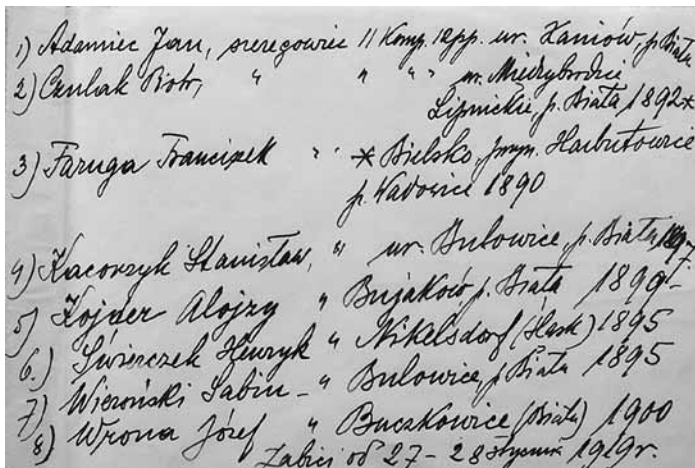 1) Adamiec Jan, szeregowiec 11 Komp. 12 pp. ur. Kaniów, p. Biała
2) Czulak Piotr, " " " " ur. Międzybrodzie
Lipnickie, p. Biała 1892
3) Faruga Franciszek " * Bielsko, przyn. Harbutowice
p. Wadowice 1890
4) Kacorzyk Stanisław, " ur. Bulowice, p. Biała 1897
5) Kojder Alojzy " Bujaków, p. Biała 1899
6.) Świerczek Henryk " Nikelsdorf (Śląsk) 1895
7) Wieroński Sabin - " Bulowice, p. Biała 1895
8) Wrona Józef " Buczkowice (Biała) 1900
Zabici od 27 - 28 stycznia 1919 r.